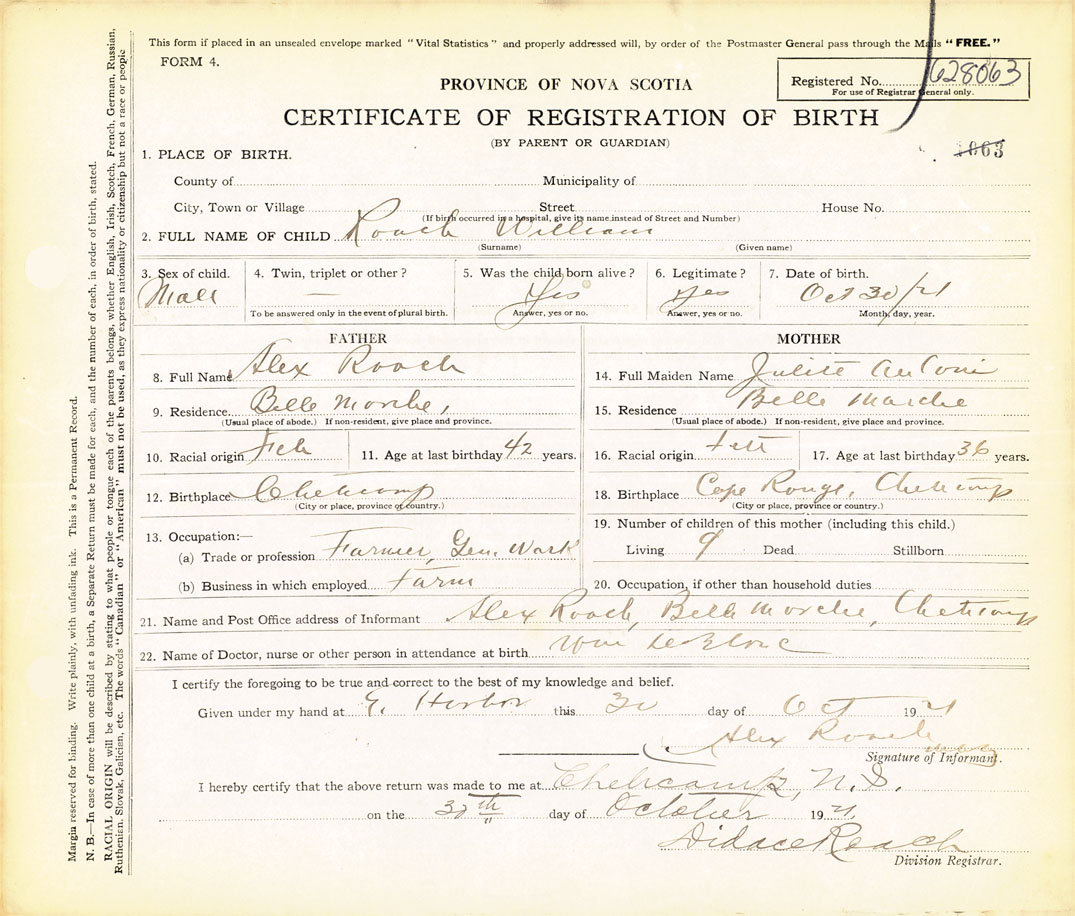 This form if placed in an unsealed envelope marked "Vital Statistics" and properly addressed will, by order of the Postmaster General pass through the Mails "FREE."
FORM 4.
Registered No. 628063
For use of Registrar General only.
PROVINCE OF NOVA SCOTIA
CERTIFICATE OF REGISTRATION OF BIRTH
(BY PARENT OR GUARDIAN)
1063
1. PLACE OF BIRTH.
County of Municipality of
City, Town or Village Street House No.
(If birth occurred in a hospital, give its name instead of Street and Number)
2. FULL NAME OF CHILD Roach William
(Surname) (Given name)
3. Sex of child. 4. Twin, triplet or other? 5. Was the child born alive? 6. Legitimate? 7. Date of birth.
Male — Yes Yes Oct 30/21
To be answered only in the event of plural birth. Answer, yes or no. Answer, yes or no. Month, day, year.
FATHER
8. Full Name Alex Roach
9. Residence Belle Marche,
(Usual place of abode.) If non-resident, give place and province.
10. Racial origin 11. Age at last birthday 42 years.
12. Birthplace Cheticamp
(City or place, province or country.)
13. Occupation:—
(a) Trade or profession Farmer, Gen. Work
(b) Business in which employed Farm
MOTHER
14. Full Maiden Name Julite
15. Residence Belle Marche
(Usual place of abode.) If non-resident, give place and province.
16. Racial origin 17. Age at last birthday 36 years.
18. Birthplace Cape Rouge, Cheticamp
(City or place, province or country.)
19. Number of children of this mother (including this child.)
Living 9 Dead Stillborn
20. Occupation, if other than household duties
21. Name and Post Office address of Informant Alex Roach, Belle Marche, Cheticamp
22. Name of Doctor, nurse or other person in attendance at birth Wm LeBlanc
I certify the foregoing to be true and correct to the best of my knowledge and belief.
Given under my hand at E. Harbor this 30 day of Oct 1921
Alex Roach
Signature of Informant.
I hereby certify that the above return was made to me at Cheticamp, N.S.
on the 30th day of October 1921
Didace Roach
Division Registrar.
Margin reserved for binding. Write plainly, with unfading ink. This is a Permanent Record.
N. B.—In case of more than one child at a birth, a Separate Return must be made for each, and the number of each, in order of birth, stated.
RACIAL ORIGIN will be described by stating to what people or tongue each of the parents belongs, whether English, Irish, Scotch, French, German, Russian,
Ruthenian, Slovak, Galician, etc. The words "Canadian" or "American" must not be used, as they express nationality or citizenship but not a race or people